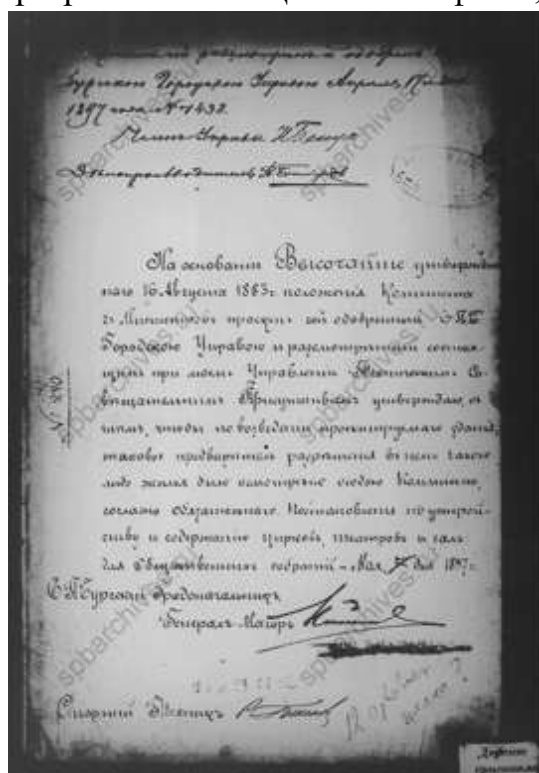 разсмотренъ и одобренъ
Городскою Управою Апрѣля 17 дня
1897 года № 1432.
Членъ Управы
Дѣлопроизводитель
На основаніи Высочайше утвержден
наго 16 Августа 1883 г. положенія Комитета
г.г. Министровъ проектъ сей одобренный С.П.Б.
Городскою Управою и разсмотрѣнный состоя-
щимъ при моемъ Управленіи Техническимъ Со-
вѣщательнымъ Присутствіемъ утверждаю, съ
тѣмъ, чтобы по возведеніи проектируемаго зданія,
таковое предварительно разрѣшенія въ немъ какого
либо жилья было осмотрѣно особою Комиссіею,
согласно обязательнаго Постановленія по устрой-
ству и содержанію цирковъ, театровъ и залъ
для общественныхъ собраній. - Мая 7 дня 1897 г.
С.П.Бургскій Градоначальникъ
Генералъ Маіоръ
Старшій Техникъ
spbarchives.ru